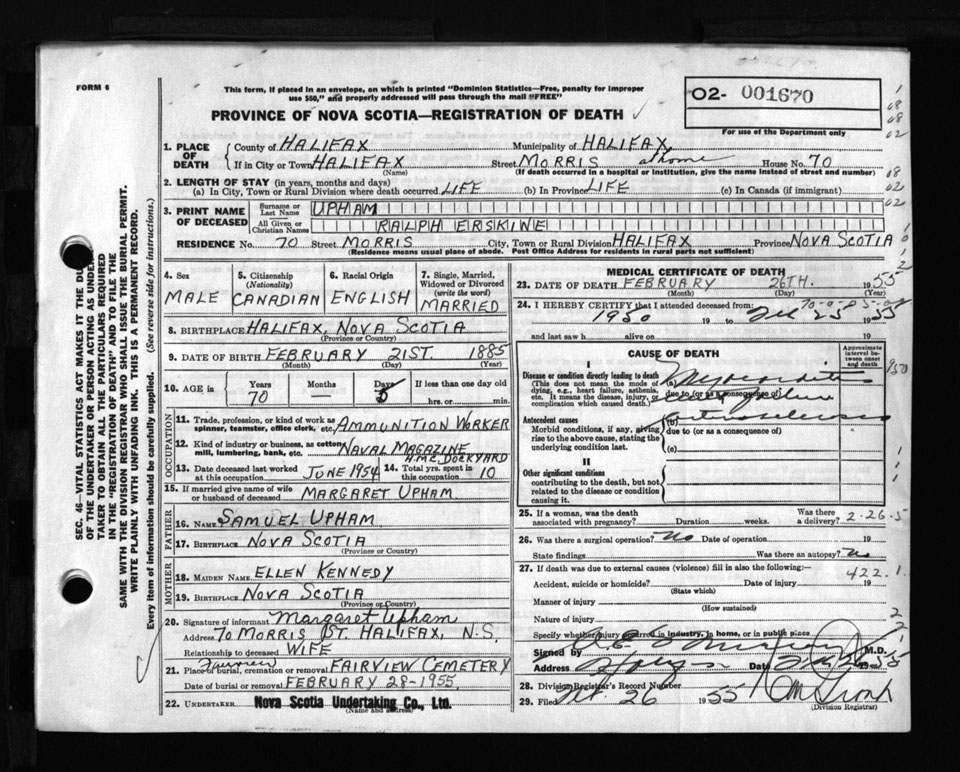 FORM 6
This form, if placed in an envelope, on which is printed "Dominion Statistics—Free, penalty for improper
use $50," and properly addressed will pass through the mail "FREE"
O2- 001670
For use of the Department only
PROVINCE OF NOVA SCOTIA—REGISTRATION OF DEATH
SEC. 46—VITAL STATISTICS ACT MAKES IT THE DU
OF THE UNDERTAKER OR PERSON ACTING AS UNDER
TAKER TO OBTAIN ALL THE PARTICULARS REQUIRED
IN THE "REGISTRATION OF DEATH" AND TO FILE THE
SAME WITH THE DIVISION REGISTRAR WHO SHALL ISSUE THE BURIAL PERMIT.
WRITE PLAINLY WITH UNFADING INK. THIS IS A PERMANENT RECORD.
Every item of information should be carefully supplied. (See reverse side for instructions.)
1. PLACE OF DEATH
County of HALIFAX Municipality of HALIFAX
If in City or Town HALIFAX Street MORRIS at home House No. 70
(Name) (If death occurred in a hospital or institution, give the name instead of street and number)
2. LENGTH OF STAY (in years, months and days)
(a) In City, Town or Rural Division where death occurred LIFE (b) In Province LIFE (c) In Canada (if immigrant)
3. PRINT NAME OF DECEASED
Surname or Last Name UPHAM
All Given or Christian Names RALPH ERSKINE
RESIDENCE No. 70 Street MORRIS City, Town or Rural Division HALIFAX Province NOVA SCOTIA
(Residence means usual place of abode. Post Office Address for residents in rural parts not sufficient)
4. Sex MALE
5. Citizenship (Nationality) CANADIAN
6. Racial Origin ENGLISH
7. Single, Married, Widowed or Divorced (write the word) MARRIED
8. BIRTHPLACE HALIFAX, NOVA SCOTIA
(Province or Country)
9. DATE OF BIRTH FEBRUARY 21ST. 1885
(Month) (Day) (Year)
10. AGE in Years 70 Months — Days 5 If less than one day old
hrs. or min.
OCCUPATION
11. Trade, profession, or kind of work as spinner, teamster, office clerk, etc. AMMUNITION WORKER
12. Kind of industry or business, as cotton mill, lumbering, bank, etc. NAVAL MAGAZINE
H.M.C. DOCKYARD
13. Date deceased last worked at this occupation JUNE 1954 14. Total yrs. spent in this occupation 10
15. If married give name of wife or husband of deceased MARGARET UPHAM
FATHER
16. NAME SAMUEL UPHAM
17. BIRTHPLACE NOVA SCOTIA
(Province or Country)
MOTHER
18. MAIDEN NAME ELLEN KENNEDY
19. BIRTHPLACE NOVA SCOTIA
(Province or Country)
20. Signature of informant Margaret Upham
Address 70 MORRIS ST. HALIFAX, N.S.
Relationship to deceased WIFE
21. Place of burial, cremation or removal FAIRVIEW CEMETERY
Date of burial or removal FEBRUARY 28-1955
22. UNDERTAKER Nova Scotia Undertaking Co., Ltd.
(Name and address)
MEDICAL CERTIFICATE OF DEATH
23. DATE OF DEATH FEBRUARY 26TH. 1955
(Month) (Day) (Year)
24. I HEREBY CERTIFY that I attended deceased from:
1950 19 to Feb 25 1955
and last saw h alive on 19
CAUSE OF DEATH
Approximate interval between onset and death
I
Disease or condition directly leading to death
(This does not mean the mode of dying, e.g., heart failure, asthenia, etc. It means the disease, injury, or complication which caused death.)
(a) Myocarditis
due to (or as a consequence of)
1950
Antecedent causes
Morbid conditions, if any, giving rise to the above cause, stating the underlying condition last.
(b)
due to (or as a consequence of)
(c)
II
Other significant conditions
contributing to the death, but not related to the disease or condition causing it.
25. If a woman, was the death associated with pregnancy? Duration weeks. Was there a delivery? 2-26-5
26. Was there a surgical operation? No Date of operation 19
State findings Was there an autopsy? No
27. If death was due to external causes (violence) fill in also the following:— 422.1
Accident, suicide or homicide? Date of injury 19
(State which)
Manner of injury
(How sustained)
Nature of injury
Specify whether injury occurred in industry, in home, or in public place
Signed by M.D.
Address Date
28. Division Registrar's Record Number
29. Filed 26 1955
(Division Registrar)